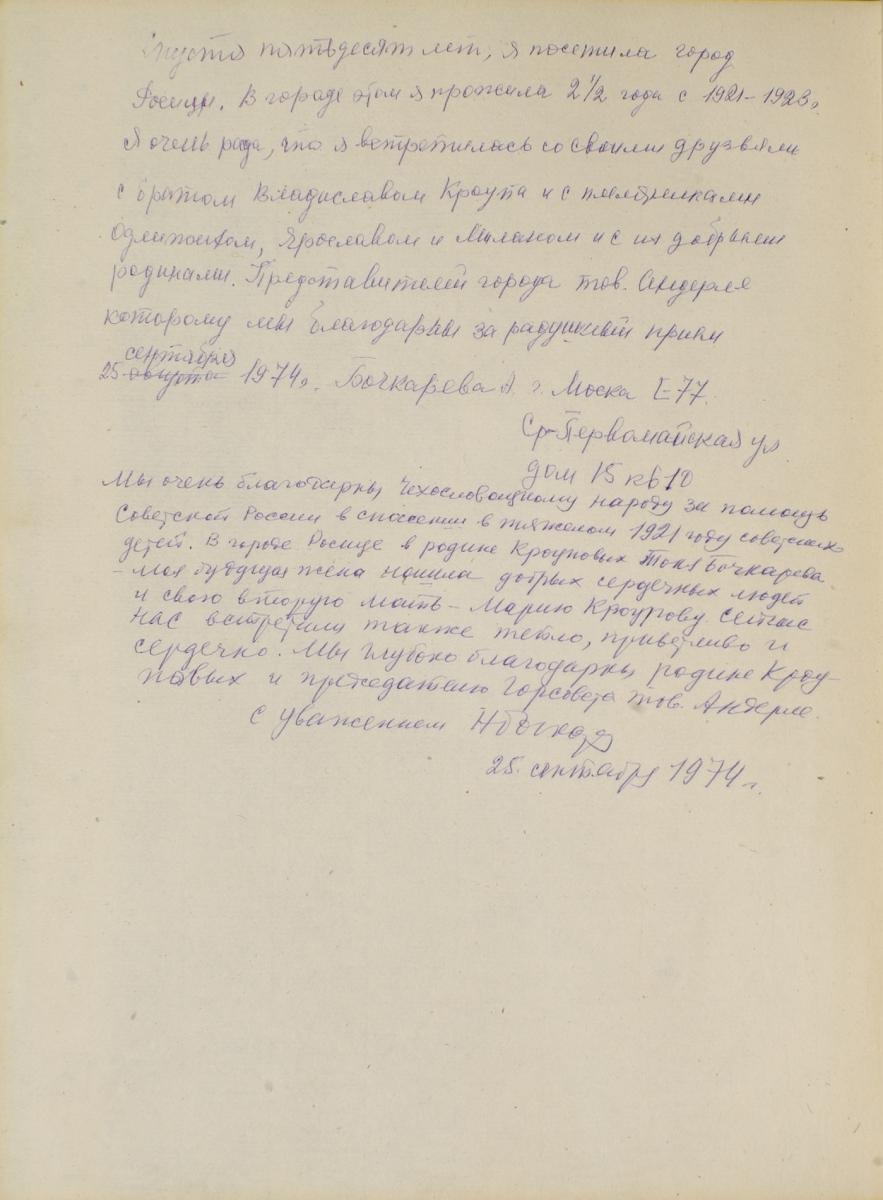 Спустя пятьдесят лет, я посетила город
Росицы. В городе этом я прожила 2 1/2 года с 1921-1923г.
Я очень рада, что я встретилась со своими друзьями
с братом Владиславом Кроупа и с племянниками
Ярославом и Миланом и с их добрыми
родинами. Представителей города тов. Андерле
которому мы благодарны за радушный прием
сентября
25 августа 1974г. Бочкарева А г. Моска Е-77.
Ср-Первомайская ул
дом 15 кв 10
Мы очень благодарны Чехословацкому народу за помощь
Советской России в спасении в тяжелом 1921 году советских
детей. В городе Росице в родине Кроуповых Тоня Бочкарева
- моя будущая жена нашла добрых сердечных людей
и свою вторую мать - Марию Кроупову. Сейчас
нас встретили также тепло, приветливо и
сердечно. Мы глубоко благодарны родине Кроу-
повых и председателю Горсовета тов. Андерле.
С уважением
25. сентября 1974 г.